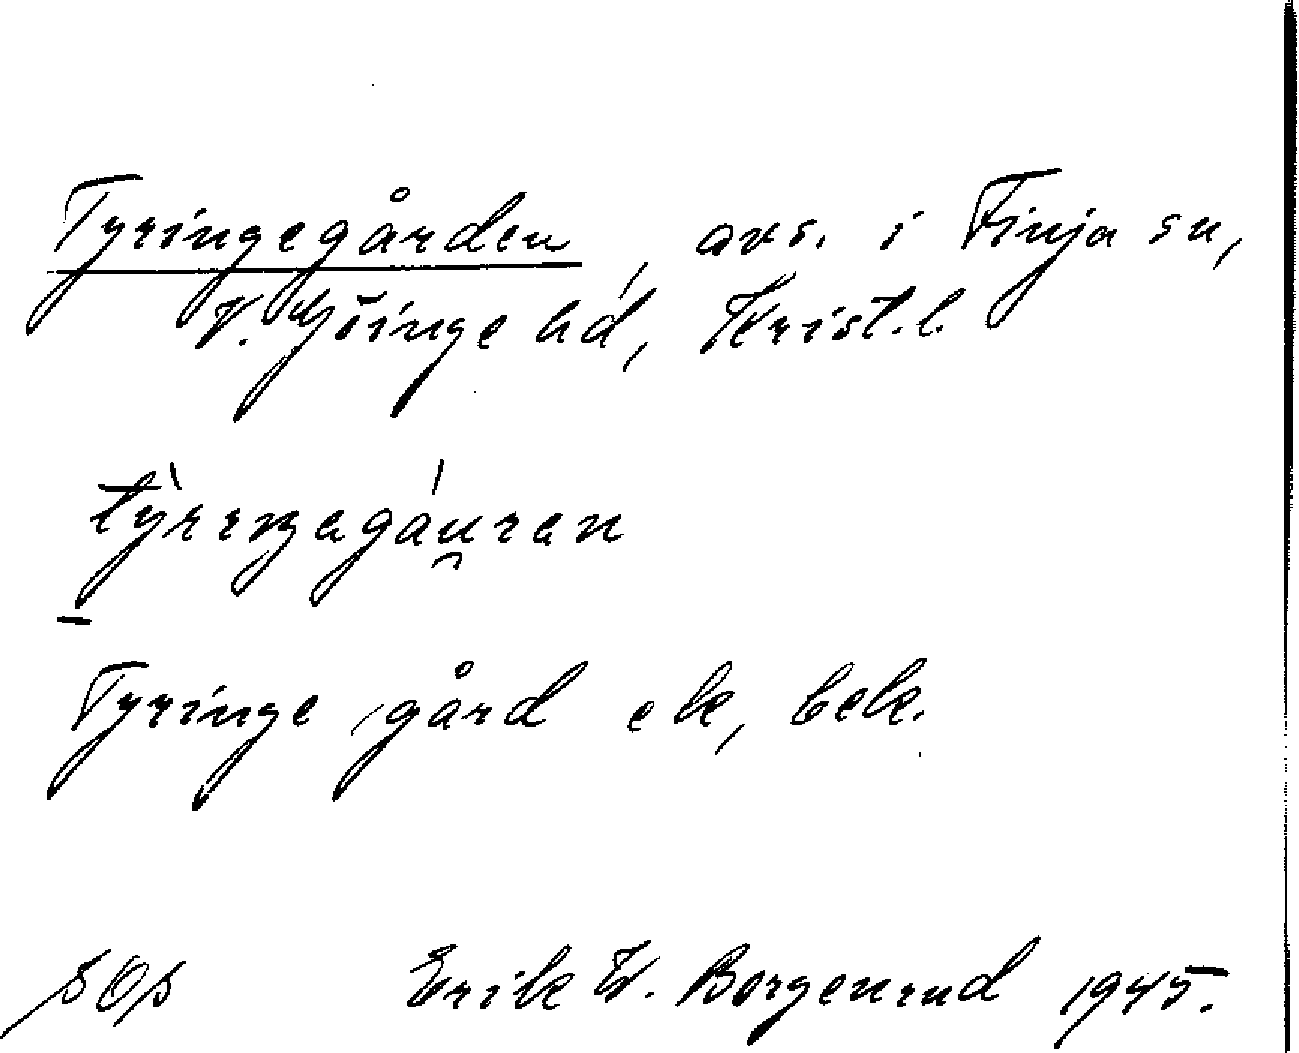 Tyringegården, avs. i Finja sn,
V. Göinge hd, Krist. l.
Tyringe gård ek, bek.
SOS Erik W. Borgenrud 1945.